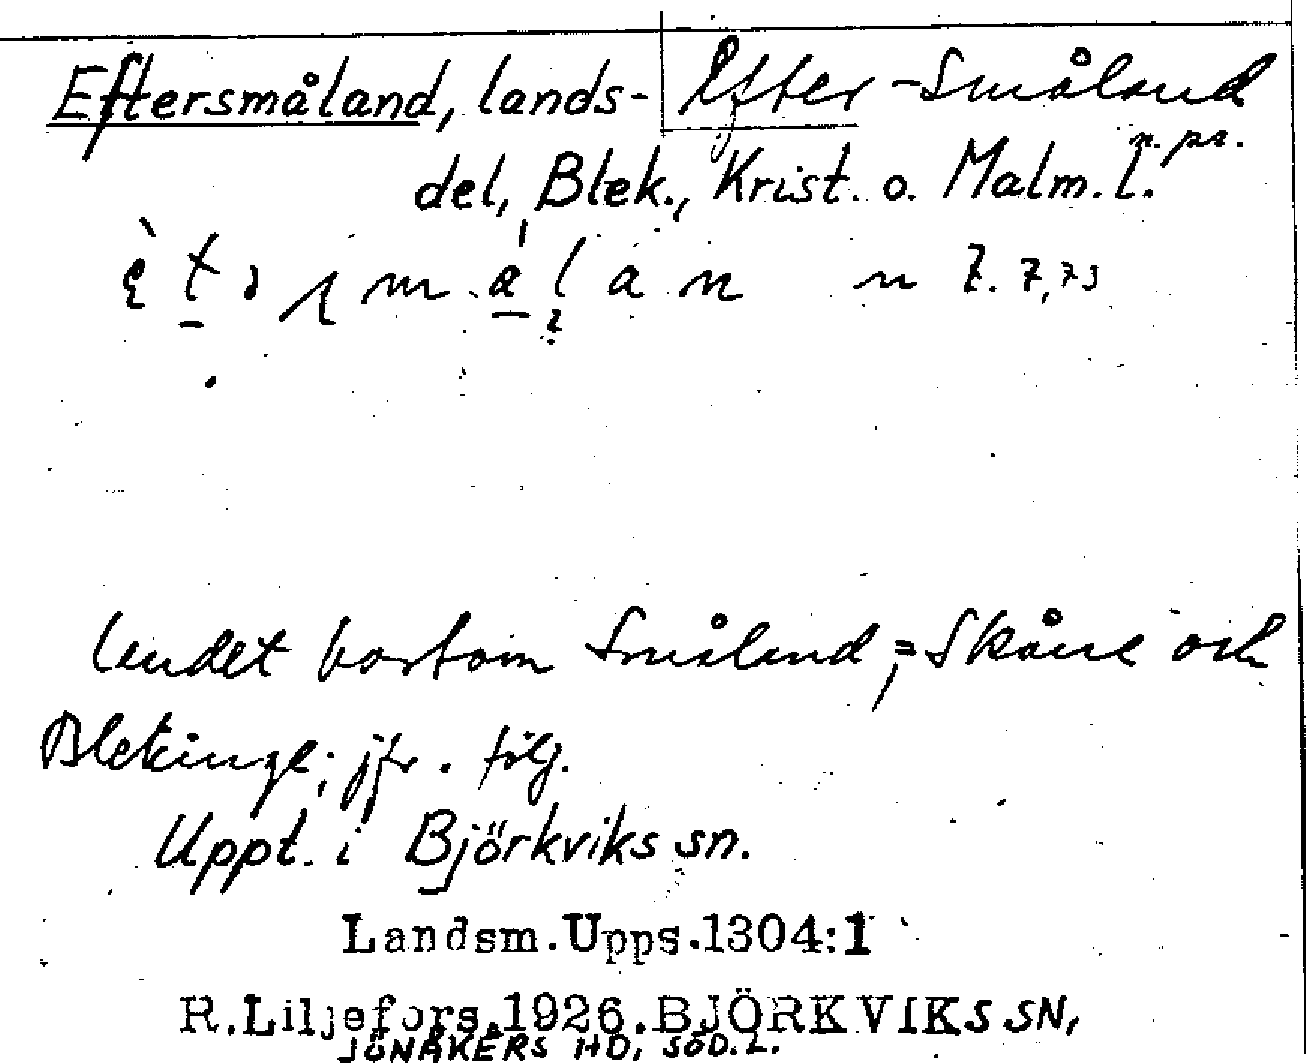 Eftersmåland, lands- Efter-Småland
n. pr.
del, Blek., Krist. o. Malm. l.
landet bortom Småland, = Skåne och
Blekinge; jfr. följ.
Uppt. i Björkviks sn.
Landsm.Upps.1304:1
R.Liljefors.1926.BJÖRKVIKS SN,
JÖNÅKERS HD, SÖD.L.